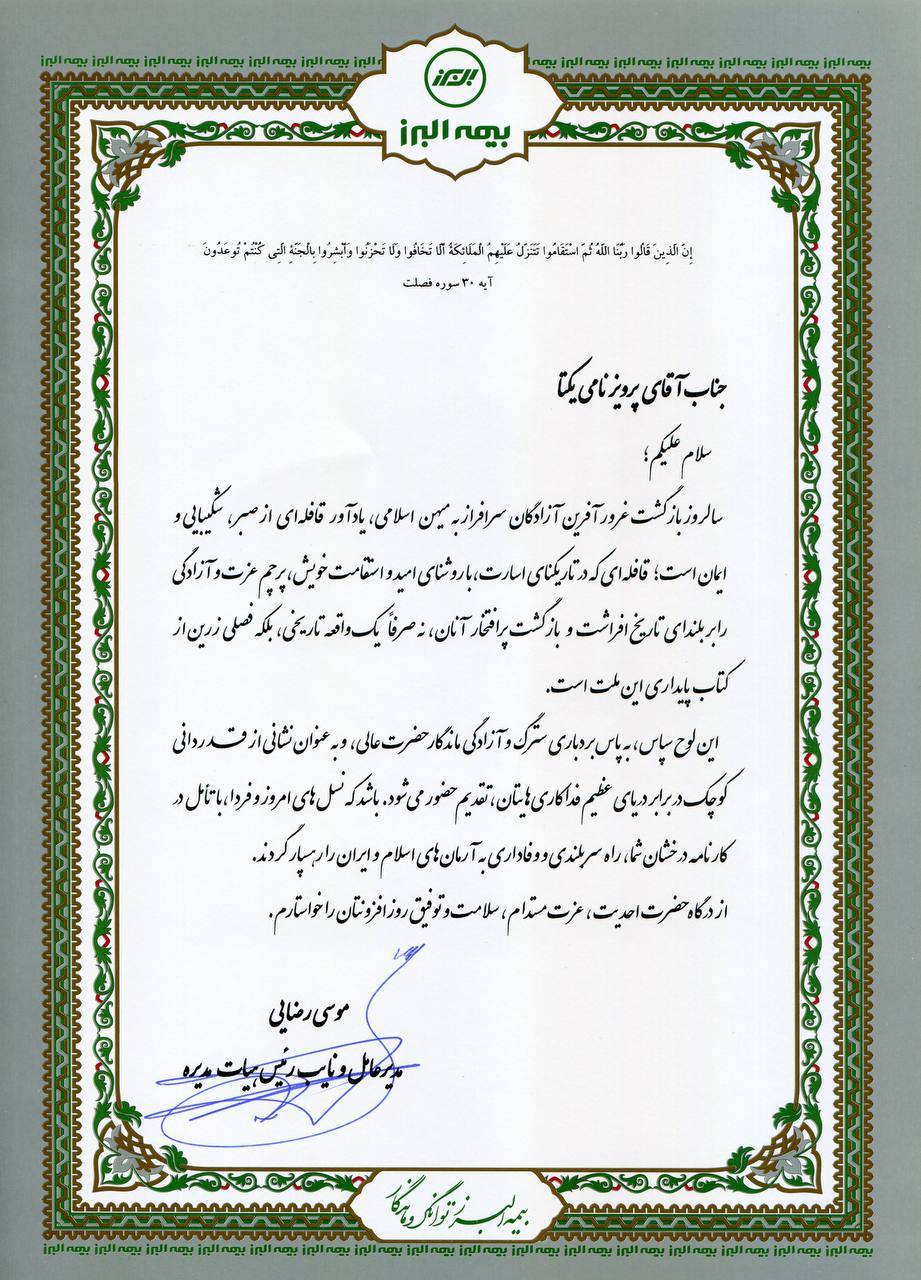 البرز
بیمه البرز
إِنَّ الَّذِینَ قَالُوا رَبُّنَا اللَّهُ ثُمَّ اسْتَقَامُوا تَتَنَزَّلُ عَلَیْهِمُ الْمَلَائِکَةُ أَلَّا تَخَافُوا وَلَا تَحْزَنُوا وَأَبْشِرُوا بِالْجَنَّةِ الَّتِی کُنْتُمْ تُوعَدُونَ
آیه ۳۰ سوره فصلت
جناب آقای پرویز نامی یکتا
سلام علیکم؛
سالروز بازگشت غرور آفرین آزادگان سرافراز به میهن اسلامی، یادآور قافله‌ای از صبر، شکیبایی و
ایمان است؛ قافله‌ای که در تاریکنای اسارت، با روشنای امید و استقامت خویش، پرچم عزت و آزادگی
را بر بلندای تاریخ افراشت و بازگشت پرافتخار آنان، نه صرفاً یک واقعه تاریخی، بلکه فصلی زرین از
کتاب پایداری این ملت است.
این لوح سپاس، به پاس بردباری سترگ و آزادگی ماندگار حضرت عالی، و به عنوان نشانی از قدردانی
کوچک در برابر دریای عظیم فداکاری هایتان، تقدیم حضور می‌شود. باشد که نسل های امروز و فردا، با تأمل در
کارنامه درخشان شما، راه سربلندی و وفاداری به آرمان های اسلام و ایران را رهسپار گردند.
از درگاه حضرت احدیت، عزت مستدام، سلامت و توفیق روزافزونتان را خواستارم.
موسی رضایی
مدیرعامل و نایب رئیس هیات مدیره
بیمه البرز توانگر و ماندگار